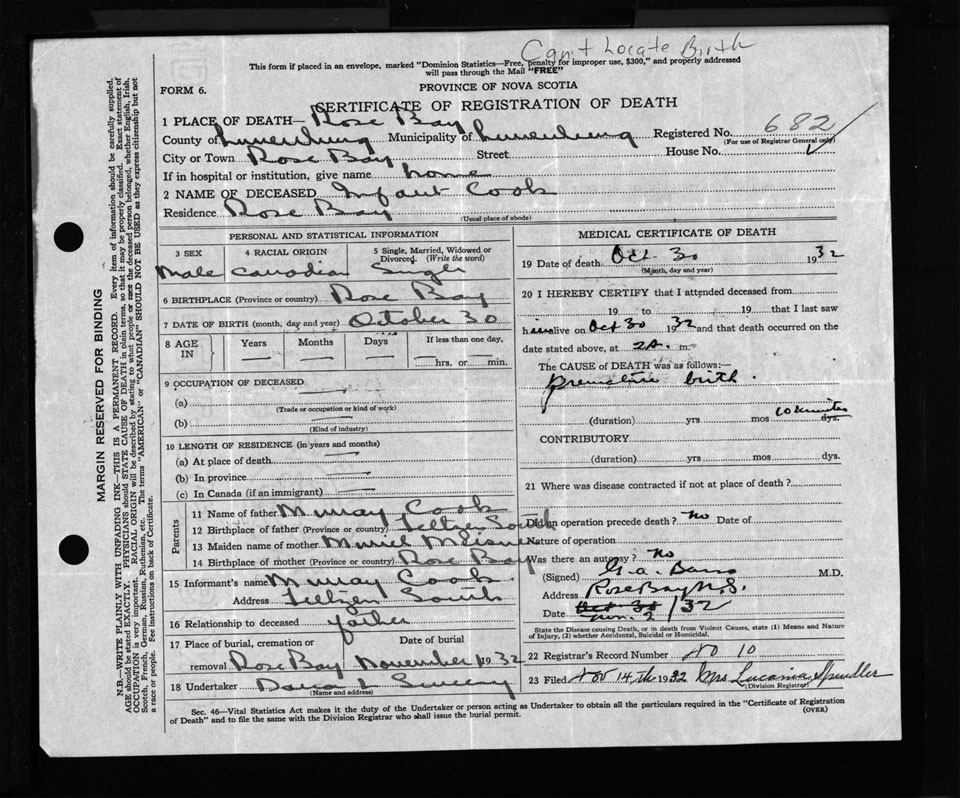 Can't Locate Birth
This form if placed in an envelope, marked "Dominion Statistics—Free, penalty for improper use, $300," and properly addressed
will pass through the Mail "FREE"
FORM 6.
PROVINCE OF NOVA SCOTIA
CERTIFICATE OF REGISTRATION OF DEATH
1 PLACE OF DEATH— Rose Bay
County of Lunenburg Municipality of Lunenburg Registered No. 682
(For use of Registrar General only)
City or Town Rose Bay Street House No.
If in hospital or institution, give name home
2 NAME OF DECEASED Infant Cook
Residence Rose Bay
(Usual place of abode)
PERSONAL AND STATISTICAL INFORMATION
3 SEX 4 RACIAL ORIGIN 5 Single, Married, Widowed or
Divorced. (Write the word)
Male Canadian Single
6 BIRTHPLACE (Province or country) Rose Bay
7 DATE OF BIRTH (month, day and year) October 30
8 AGE IN Years Months Days If less than one day,
hrs. or min.
9 OCCUPATION OF DECEASED
(a)
(Trade or occupation or kind of work)
(b)
(Kind of industry)
10 LENGTH OF RESIDENCE (in years and months)
(a) At place of death
(b) In province
(c) In Canada (if an immigrant)
Parents
11 Name of father Murray Cook
12 Birthplace of father (Province or country) Feltzen South
13 Maiden name of mother Muriel
14 Birthplace of mother (Province or country) Rose Bay
15 Informant's name Murray Cook
Address Feltzen South
16 Relationship to deceased father
17 Place of burial, cremation or Date of burial
removal Rose Bay November 1 1932
18 Undertaker
(Name and address)
MEDICAL CERTIFICATE OF DEATH
19 Date of death Oct 30 1932
(Month, day and year)
20 I HEREBY CERTIFY that I attended deceased from
19 to 19 that I last saw
him alive on Oct 30 1932 and that death occurred on the
date stated above, at 2 A. m.
The CAUSE of DEATH was as follows:—
premature birth
10 minutes
(duration) yrs mos dys.
CONTRIBUTORY
(duration) yrs mos dys.
21 Where was disease contracted if not at place of death ?
Did an operation precede death ? No Date of
Nature of operation
Was there an autopsy ? No
(Signed) M.D.
Address Rose Bay N.S.
Date Nov. 2 /32
State the Disease causing Death, or in death from Violent Causes, state (1) Means and Nature
of Injury, (2) whether Accidental, Suicidal or Homicidal.
22 Registrar's Record Number No 10
23 Filed Nov 14th 1932 Mrs Lucania Spindler
(Division Registrar)
Sec. 46—Vital Statistics Act makes it the duty of the Undertaker or person acting as Undertaker to obtain all the particulars required in the "Certificate of Registration
of Death" and to file the same with the Division Registrar who shall issue the burial permit.
(OVER)
MARGIN RESERVED FOR BINDING
N.B.—WRITE PLAINLY WITH UNFADING INK—THIS IS A PERMANENT RECORD. Every item of information should be carefully supplied.
AGE should be stated EXACTLY. PHYSICIANS should STATE CAUSE OF DEATH in plain terms, so that it may be properly classified. Exact statement of
OCCUPATION is very important. RACIAL ORIGIN will be described by stating to what people or race the deceased person belonged, whether English, Irish,
Scotch, French, German, Russian, Ruthenian, etc. The terms "AMERICAN" or "CANADIAN" SHOULD NOT BE USED as they express citizenship but not
a race or people. See instructions on back of Certificate.